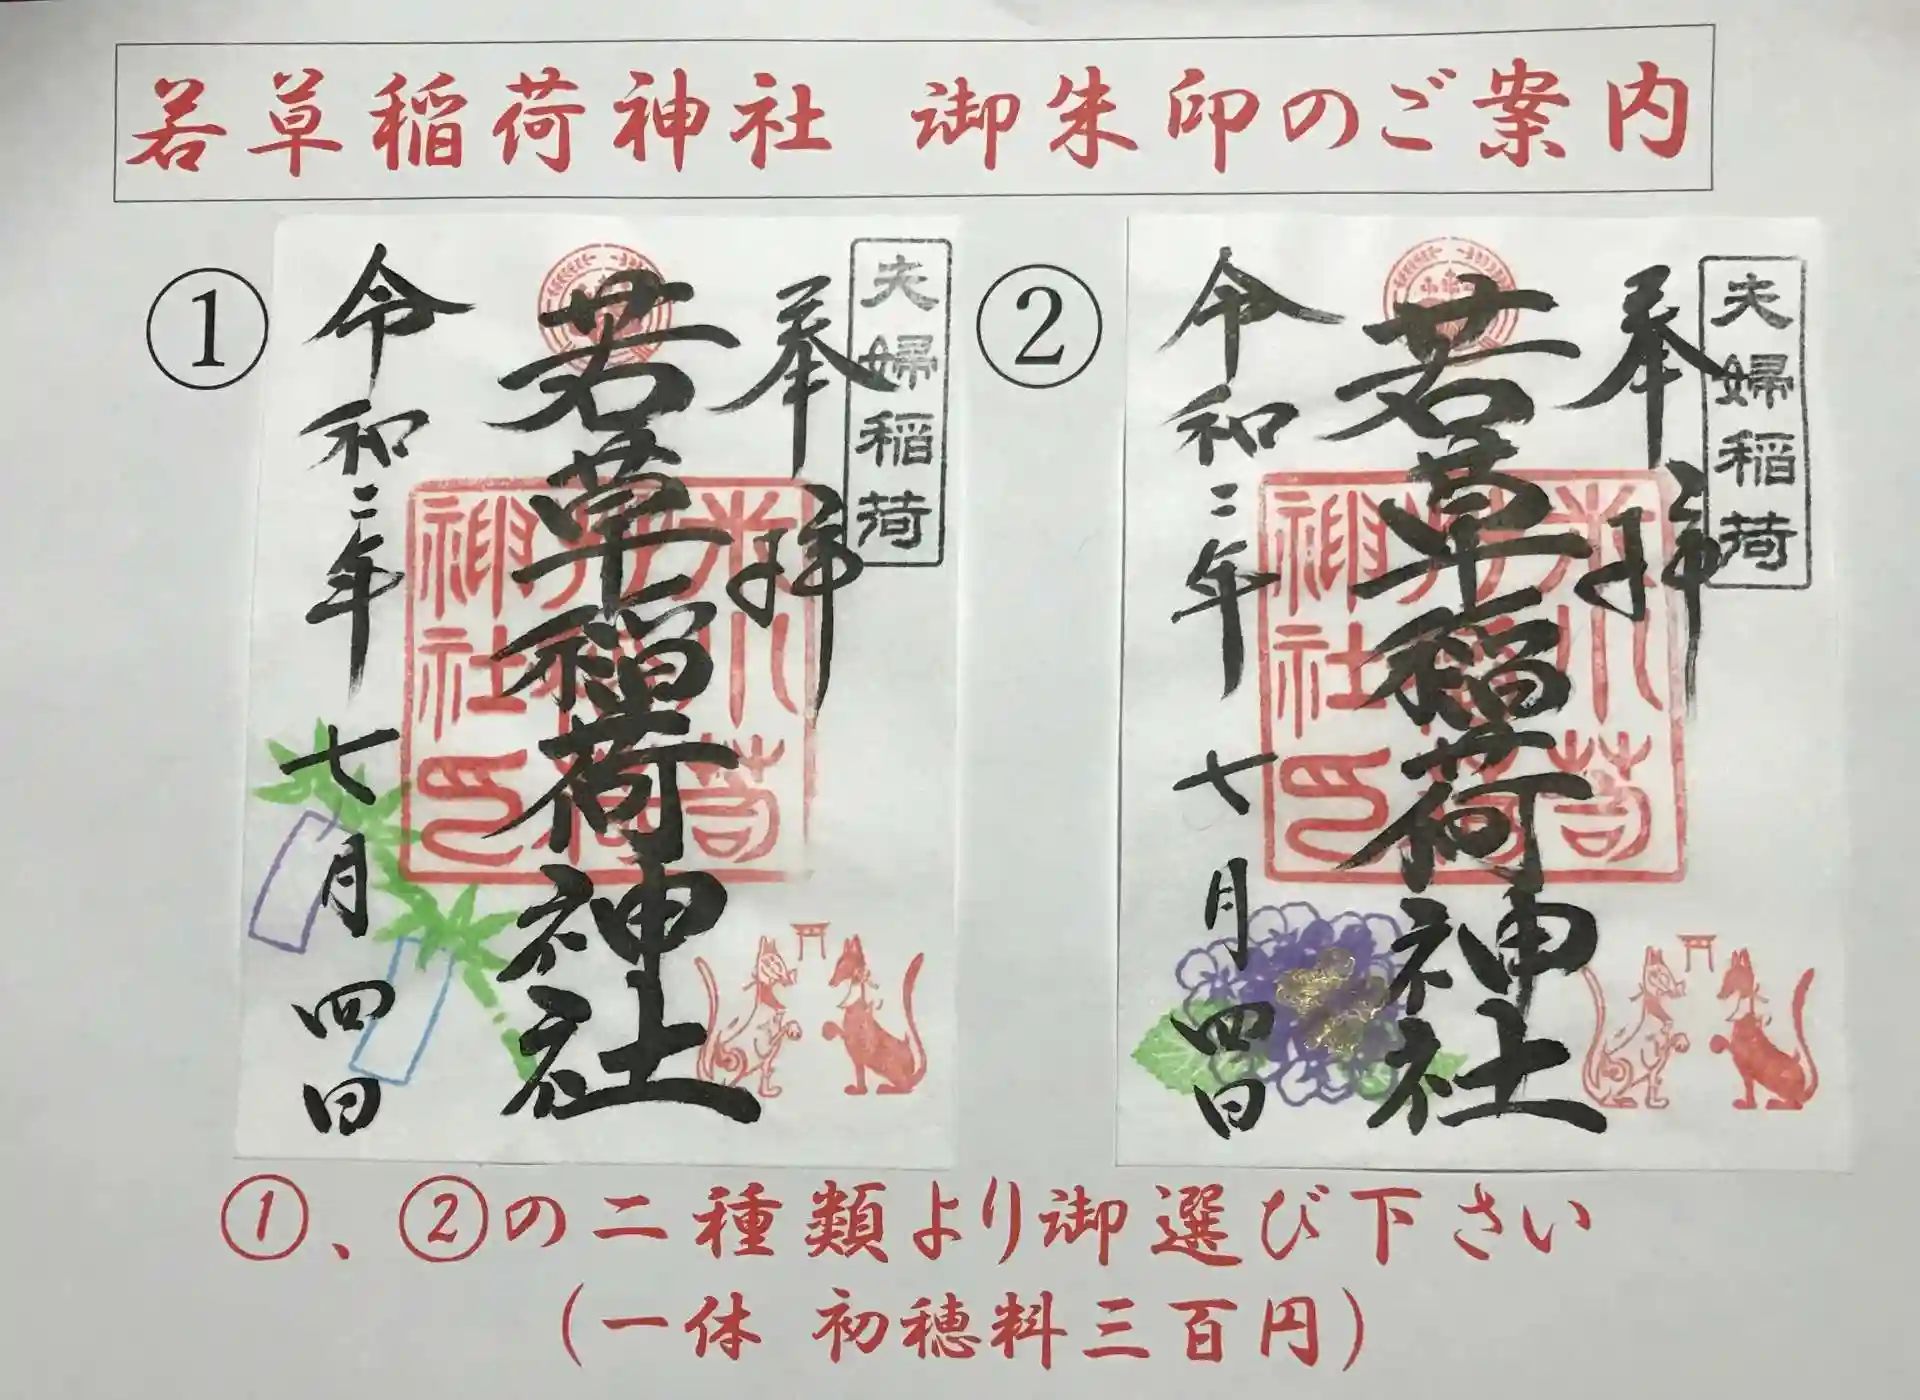 若草稲荷神社 御朱印のご案内
①
夫婦稲荷
奉拝
若草稲荷神社
令和二年
七月四日
②
夫婦稲荷
奉拝
若草稲荷神社
令和二年
七月四日
①、②の二種類より御選び下さい
(一体 初穂料三百円)